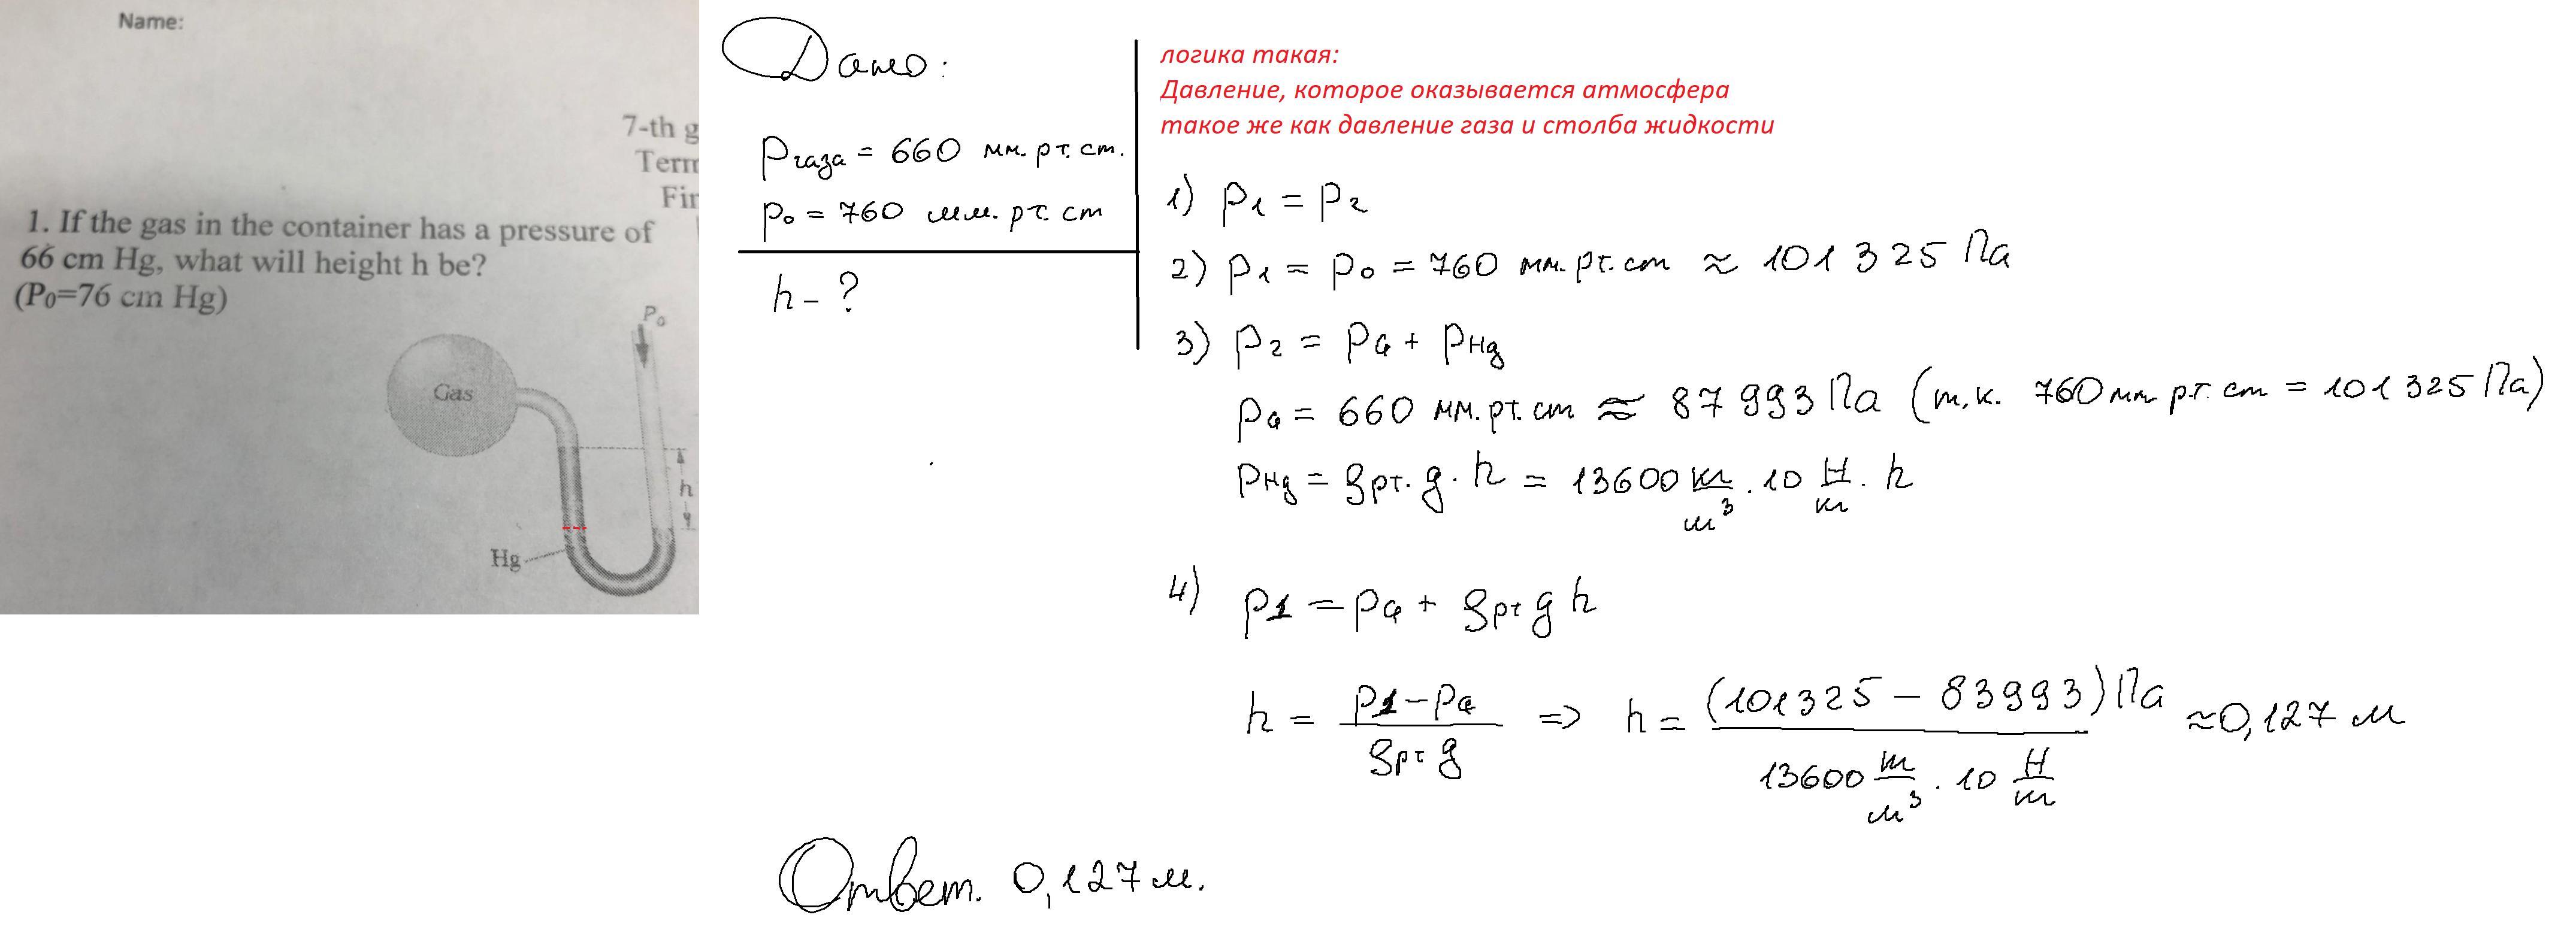 Name:
7-th g
Term
Fir
1. If the gas in the container has a pressure of
66 cm Hg, what will height h be?
(P₀=76 cm Hg)
P₀
Gas
h
Hg
Дано:
pгаза = 660 мм.рт.ст.
p₀ = 760 мм.рт.ст
h - ?
логика такая:
Давление, которое оказывается атмосфера
такое же как давление газа и столба жидкости
1) p₁ = p₂
2) p₁ = p₀ = 760 мм.рт.ст ≈ 101 325 Па
3) p₂ = pG + pHg
pG = 660 мм.рт.ст ≈ 87 993 Па (т.к. 760 мм рт.ст = 101 325 Па)
pHg = ρрт. g · h = 13600 кг/м³ · 10 Н/кг · h
4) p1 = pG + ρрт g h
h = (p1 - pG)/(ρрт g) => h = (101325 - 83993) Па/(13600 кг/м³ · 10 Н/кг) ≈ 0,127 м
Ответ. 0,127 м.